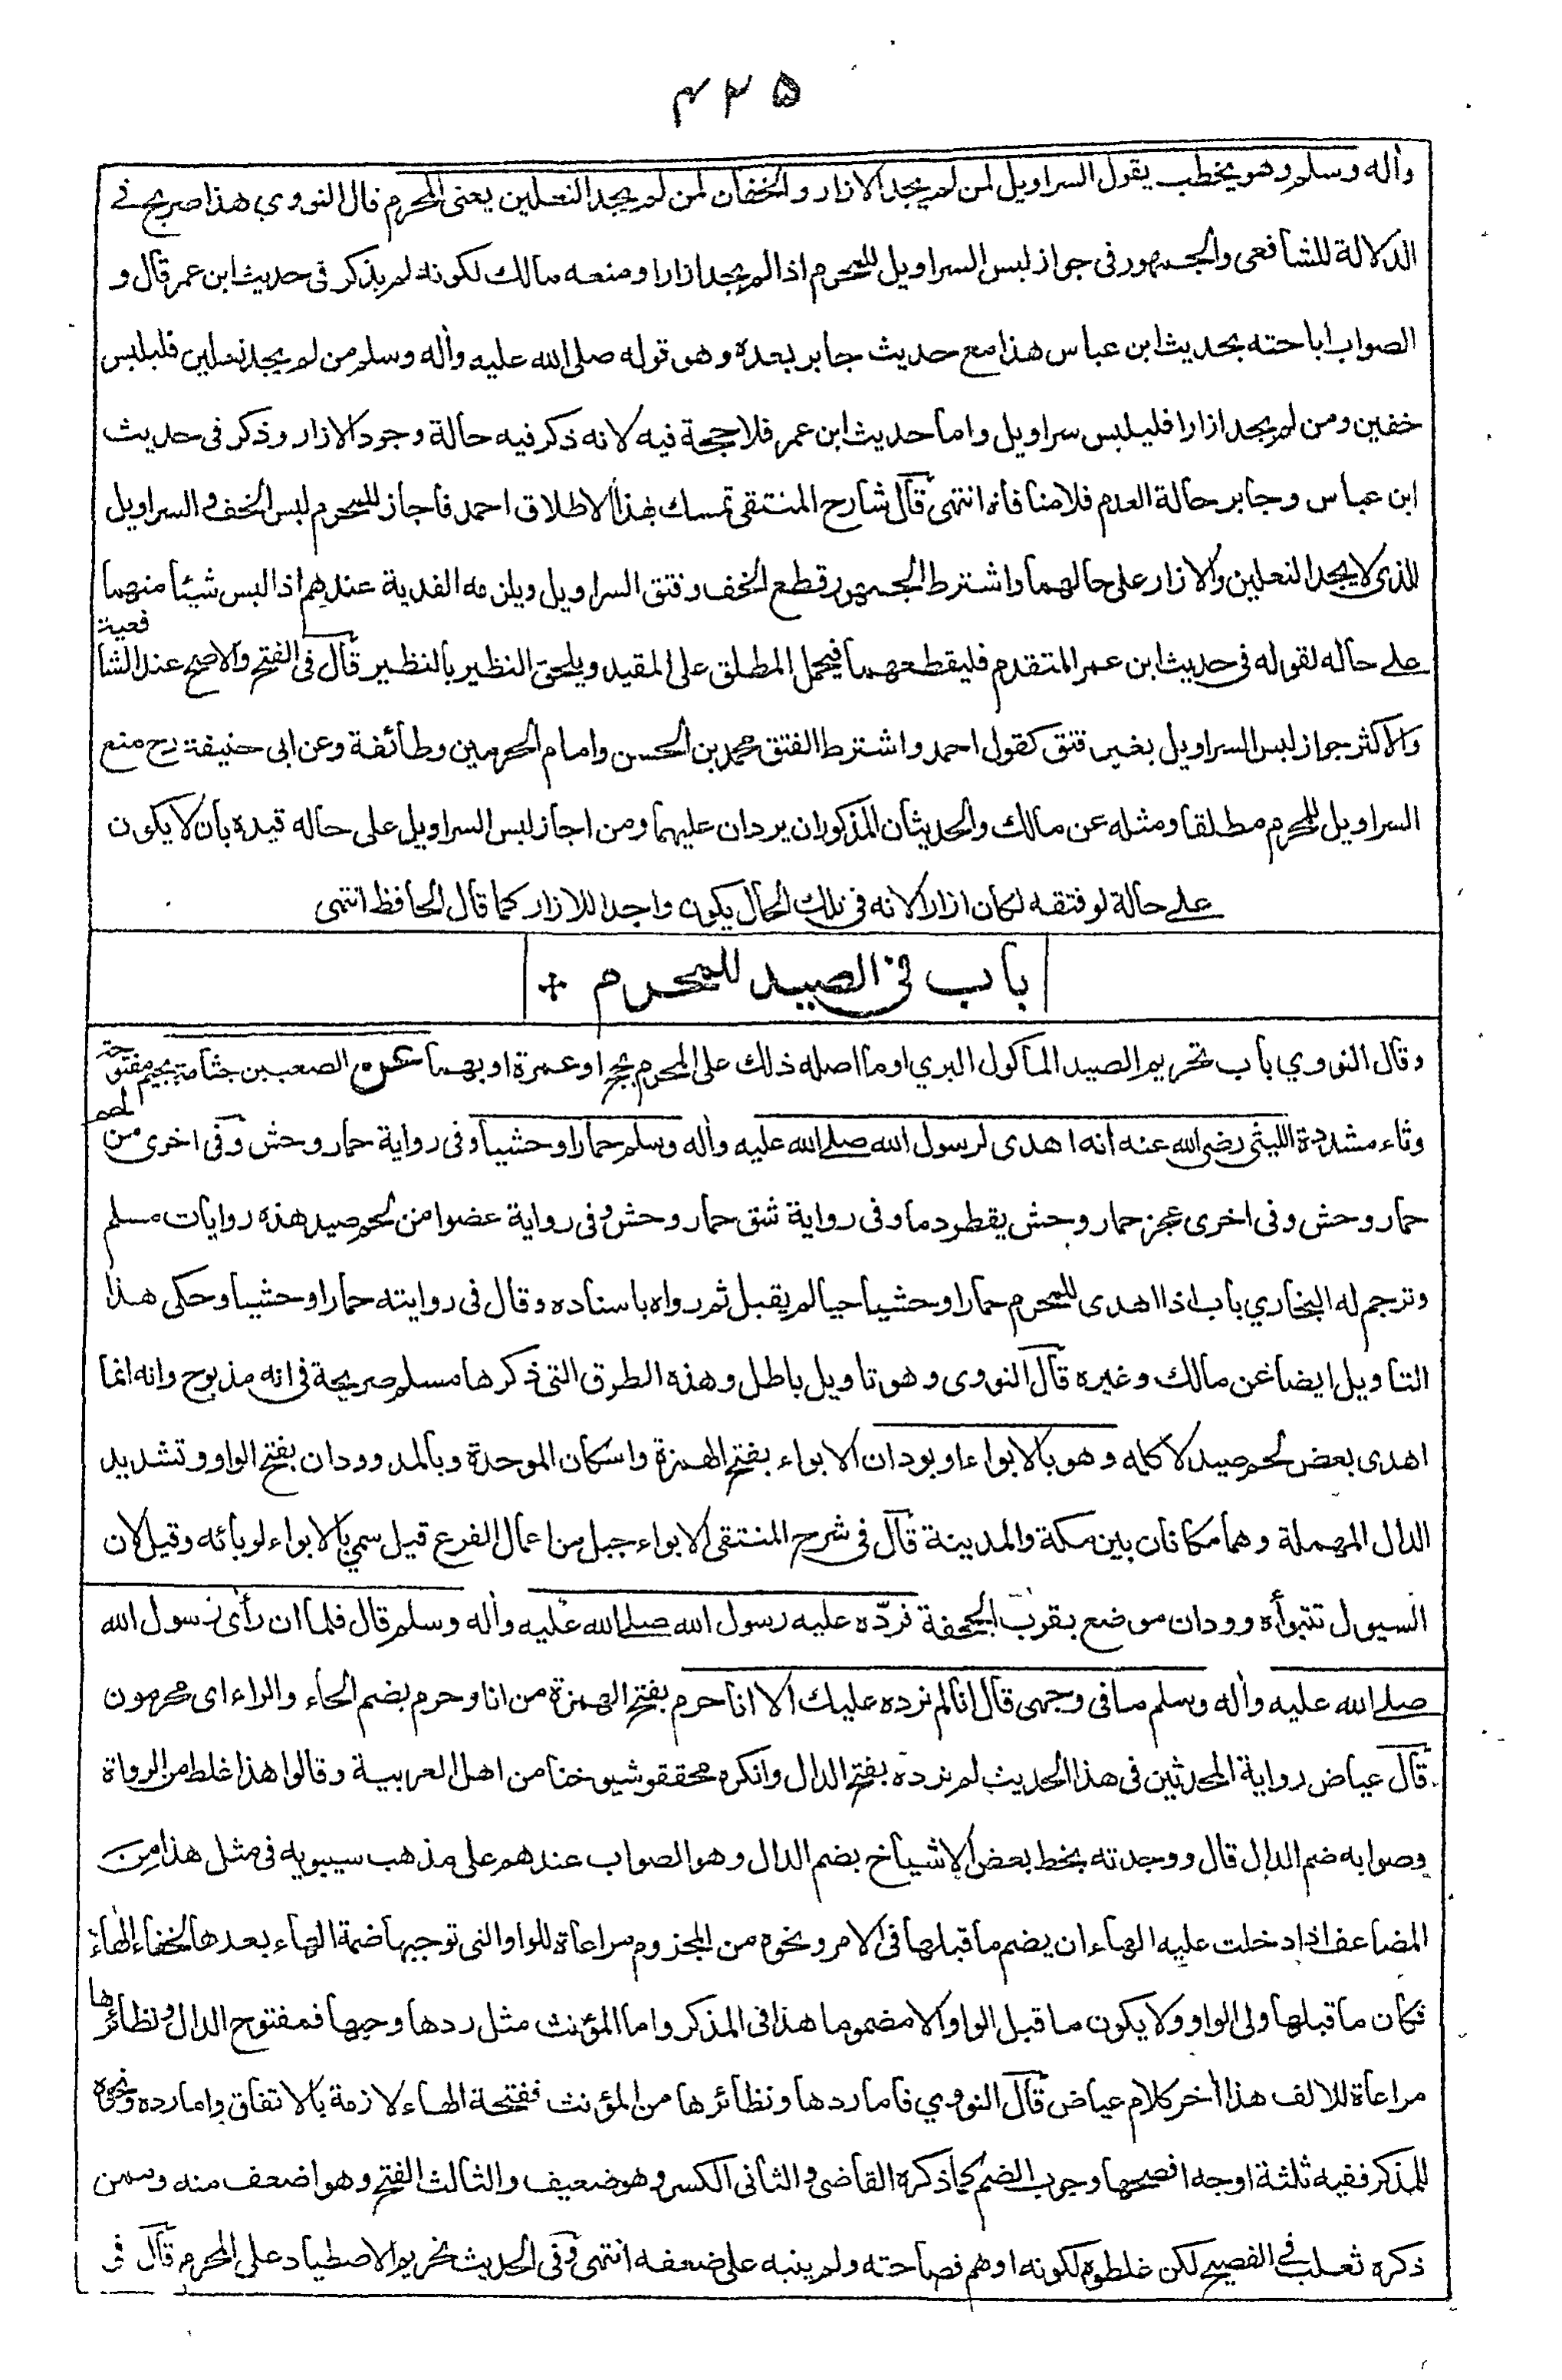 ۴۲۵
وأله وسلم وهو يخطب يقول السراويل لمن لم يجد الازار والخفان لمن لم يجد النعلين يعنى المحرم قال النووي هذا صريح في
الدلالة للشافعى والجمهور فى جواز لبس السراويل للمحرم اذا لم يجد ازارا ومنعه مالك لكونه لم يذكر فى حديث ابن عمر قال و
الصواب اباحته بحديث ابن عباس هذا مع حديث جابر بعده وهو قوله صلى الله عليه وأله وسلم من لم يجد نعلين فليلبس
خفين ومن لم يجد ازارا فليلبس سراويل واما حديث ابن عمر فلا حجة فيه لانه ذكر فيه حالة وجود الازار وذكر فى حديث
ابن عباس وجابر حالة العدم فلا منافاة انتهى قال شارح المنتقى تمسك بهذا الاطلاق احمد فاجاز للمحرم لبس الخف والسراويل
للذى لا يجد النعلين والازار على حالهما واشترط الجمهور قطع الخف وفتق السراويل ويلزمه الفدية عندهم اذا لبس شيئا منهما
على حاله لقوله فى حديث ابن عمر المتقدم فليقطعهما فيحمل المطلق على المقيد ويلحق النظير بالنظير قال فى الفتح والاصح عند الشافعية
والاكثر جواز لبس السراويل بغير فتق كقول احمد واشترط الفتق محمد بن الحسن وامام الحرمين وطائفة وعن ابى حنيفة رح منع
السراويل للمحرم مطلقا ومثله عن مالك والحديثان المذكوران يردان عليهما ومن اجاز لبس السراويل على حاله قيده بان لا يكون
على حالة لو فتقه لكان ازارا لانه فى تلك الحال يكون واجدا للازار كما قال الحافظ انتهى
باب فى الصيد للمحرم +
وقال النووي باب تحريم الصيد المأكول البري او ما اصله ذلك على المحرم بحج او عمرة او بهما عن الصعب بن جثامة بجيم مفتوحة
وثاء مشددة الليثى رضى الله عنه انه اهدى لرسول الله صلى الله عليه وأله وسلم حمارا وحشيا وفى رواية حمار وحش وفى اخرى من لحم
حمار وحش وفى اخرى عجز حمار وحش يقطر دما وفى رواية شق حمار وحش وفى رواية عضوا من لحم صيد هذه روايات مسلم
وترجم له البخاري باب اذا اهدى للمحرم حمارا وحشيا حيا لم يقبل ثم رواه باسناده وقال فى روايته حمارا وحشيا وحكى هذا
التاويل ايضا عن مالك وغيره قال النووى وهو تاويل باطل وهذه الطرق التى ذكرها مسلم صريحة فى انه مذبوح وانه انما
اهدى بعض لحم صيد لا كله وهو بالابواء او بودان الابواء بفتح الهمزة واسكان الموحدة وبالمد وودان بفتح الواو وتشديد
الدال المهملة وهما مكانان بين مكة والمدينة قال فى شرح المنتقى الابواء جبل من اعمال الفرع قيل سمي بالابواء لوبائه وقيل لان
السيول تتبوأه وودان موضع بقرب الجحفة فردّه عليه رسول الله صلى الله عليه وأله وسلم قال فلما ان رأى رسول الله
صلى الله عليه وأله وسلم ما فى وجهى قال انا لم نرده عليك الا انا حرم بفتح الهمزة من انا وحرم بضم الحاء والراء اى محرمون
قال عياض رواية المحدثين فى هذا الحديث لم نرده بفتح الدال وانكره محققو شيوخنا من اهل العربية وقالوا هذا غلط من الرواة
وصوابه ضم الدال قال ووجدته بخط بعض الاشياخ بضم الدال وهو الصواب عندهم على مذهب سيبويه فى مثل هذا من
المضاعف اذا دخلت عليه الهاء ان يضم ما قبلها فى الامر ونحوه من المجزوم مراعاة للواو التى توجبها ضمة الهاء بعدها لخفاء الهاء
فكان ما قبلها ولى الواو ولا يكون ما قبل الواو الا مضموما هذا فى المذكر واما المؤنث مثل ردها وجبها فمفتوح الدال ونظائرها
مراعاة للالف هذا أخر كلام عياض قال النووي فاما ردها ونظائرها من المؤنث ففتحة الهاء لازمة بالاتفاق واما رده ونحوه
للمذكر ففيه ثلثة اوجه افصحها وجوب الضم كما ذكره القاضى والثانى الكسر وهو ضعيف والثالث الفتح وهو اضعف منه وممن
ذكره ثعلب في الفصيح لكن غلطوه لكونه اوهم فصاحته ولم ينبه على ضعفه انتهى وفى الحديث تحريم الاصطياد على المحرم قال فى